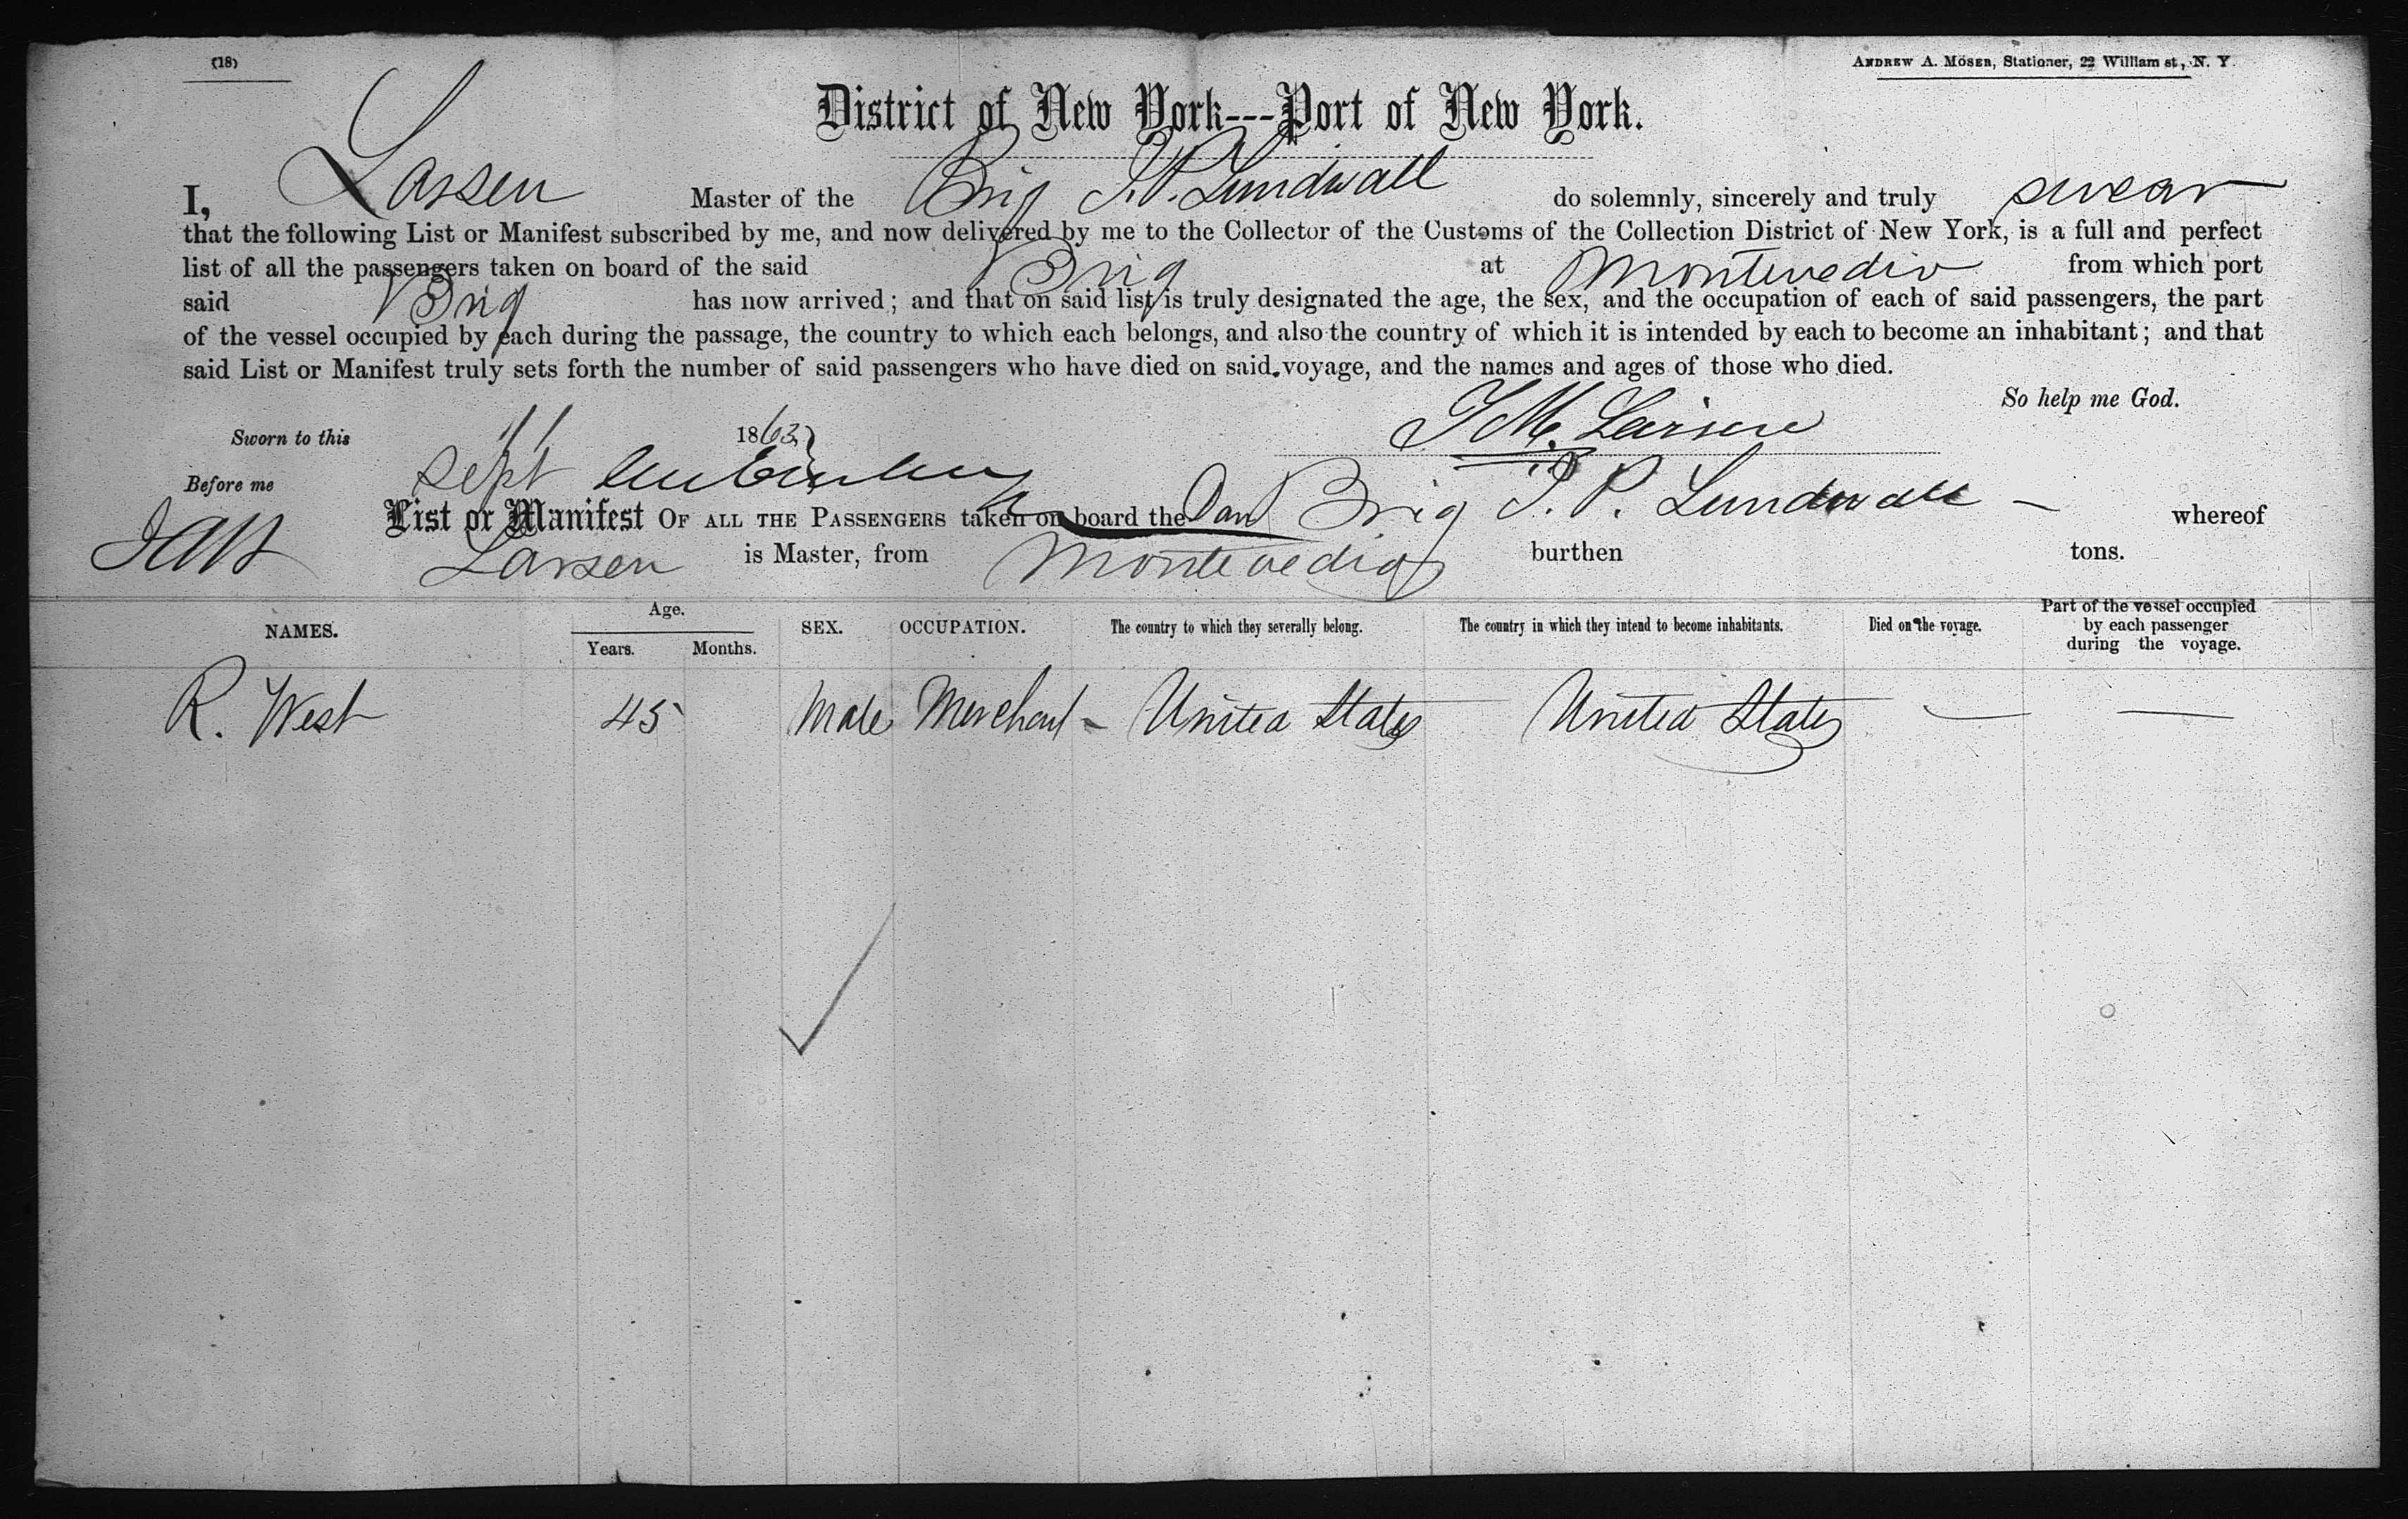 (18)
ANDREW A. MOSER, Stationer, 22 William st., N. Y.
District of New York---Port of New York.
I, Larsen Master of the Brig J. P. Lundwall do solemnly, sincerely and truly swear
that the following List or Manifest subscribed by me, and now delivered by me to the Collector of the Customs of the Collection District of New York, is a full and perfect
list of all the passengers taken on board of the said Brig at Montevedio from which port
said Brig has now arrived; and that on said list is truly designated the age, the sex, and the occupation of each of said passengers, the part
of the vessel occupied by each during the passage, the country to which each belongs, and also the country of which it is intended by each to become an inhabitant; and that
said List or Manifest truly sets forth the number of said passengers who have died on said voyage, and the names and ages of those who died.
So help me God.
Sworn to this 11 1863
Larsen
Before me Sept
List or Manifest OF ALL THE PASSENGERS taken on board the Dan Brig J. P. Lundwall – whereof
Larsen is Master, from Montevedio burthen tons.
NAMES. Age. Years. Months. SEX. OCCUPATION. The country to which they severally belong. The country in which they intend to become inhabitants. Died on the voyage. Part of the vessel occupied by each passenger during the voyage.
R. West 45 Male Merchant – United States United States — —